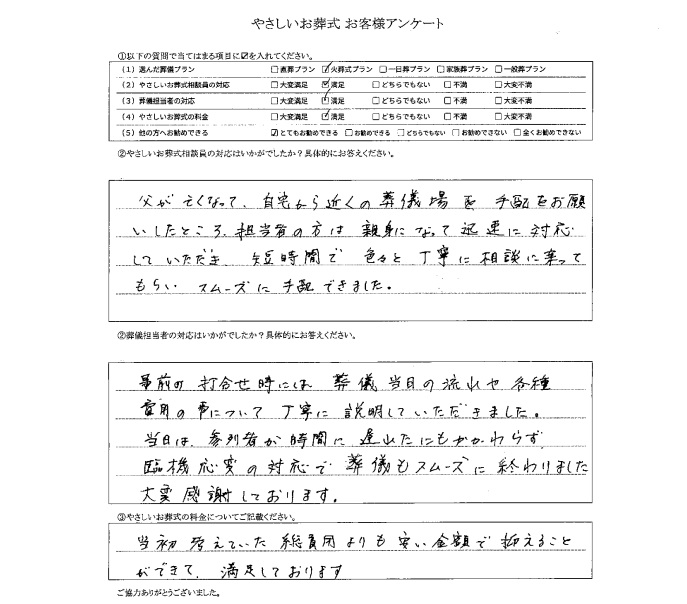 やさしいお葬式 お客様アンケート
①以下の質問で当てはまる項目に☑を入れてください。
(1) 選んだ葬儀プラン □直葬プラン ☑火葬式プラン □一日葬プラン □家族葬プラン □一般葬プラン
(2) やさしいお葬式相談員の対応 □大変満足 ☑満足 □どちらでもない □不満 □大変不満
(3) 葬儀担当者の対応 □大変満足 ☑満足 □どちらでもない □不満 □大変不満
(4) やさしいお葬式の料金 □大変満足 ☑満足 □どちらでもない □不満 □大変不満
(5) 他の方へお勧めできる ☑とてもお勧めできる □お勧めできる □どちらでもない □お勧めできない □全くお勧めできない
②やさしいお葬式相談員の対応はいかがでしたか？具体的にお答えください。
父が亡くなって、自宅から近くの葬儀場を手配をお願
いしたところ、担当者の方は親身になって迅速に対応
していただき、短時間で色々と丁寧に相談に乗って
もらい スムーズに手配できました。
②葬儀担当者の対応はいかがでしたか？具体的にお答えください。
事前の打合せ時には 葬儀当日の流れや各種
費用の事について丁寧に説明していただきました。
当日は、参列者が時間に遅れたにもかかわらず
臨機応変の対応で葬儀もスムーズに終わりました
大変感謝しております。
③やさしいお葬式の料金についてご記載ください。
当初考えていた総費用よりも安い金額で抑えること
ができて、満足しております
ご協力ありがとうございました。